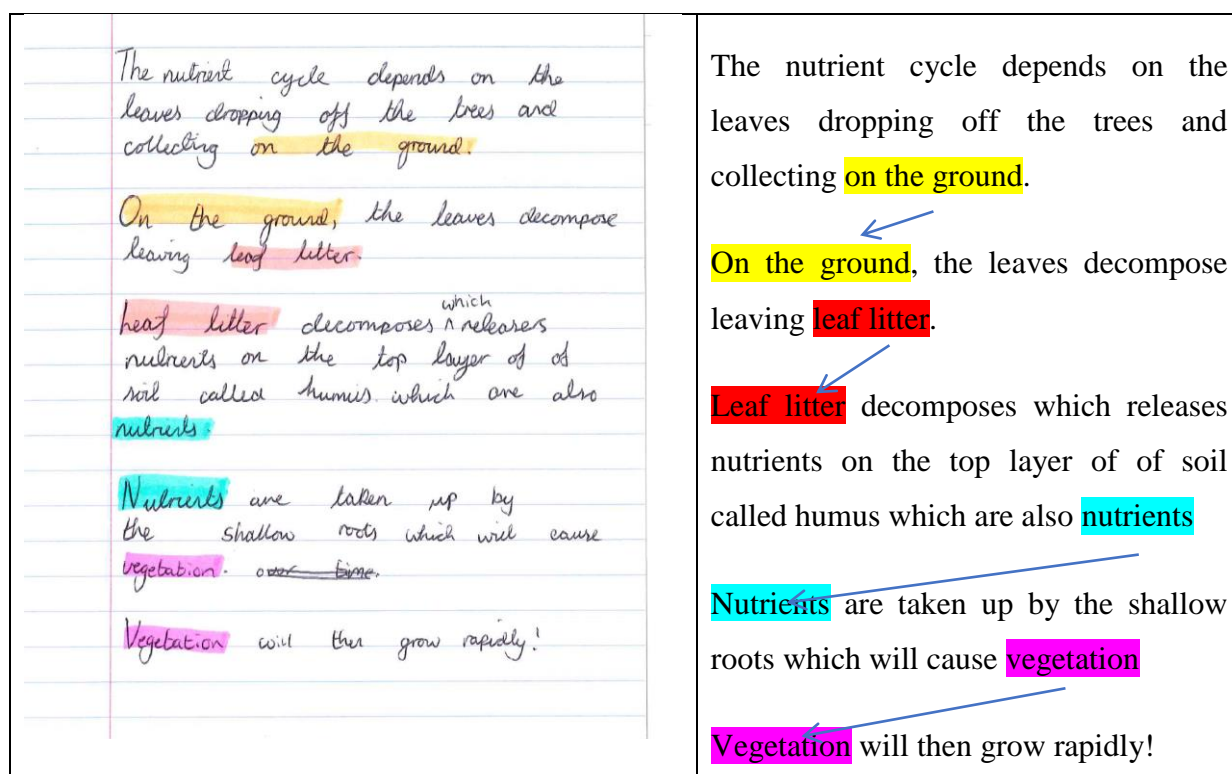 The nutrient cycle depends on the
leaves dropping off the trees and
collecting on the ground.
On the ground, the leaves decompose
leaving leaf litter.
Leaf litter decomposes ^which releasers
nutrients on the top layer of of
soil called humus which are also
nutrients.
Nutrients are taken up by
the shallow roots which will cause
vegetation. over time.
Vegetation will then grow rapidly!
The nutrient cycle depends on the
leaves dropping off the trees and
collecting on the ground.
On the ground, the leaves decompose
leaving leaf litter.
Leaf litter decomposes which releases
nutrients on the top layer of of soil
called humus which are also nutrients
Nutrients are taken up by the shallow
roots which will cause vegetation
Vegetation will then grow rapidly!